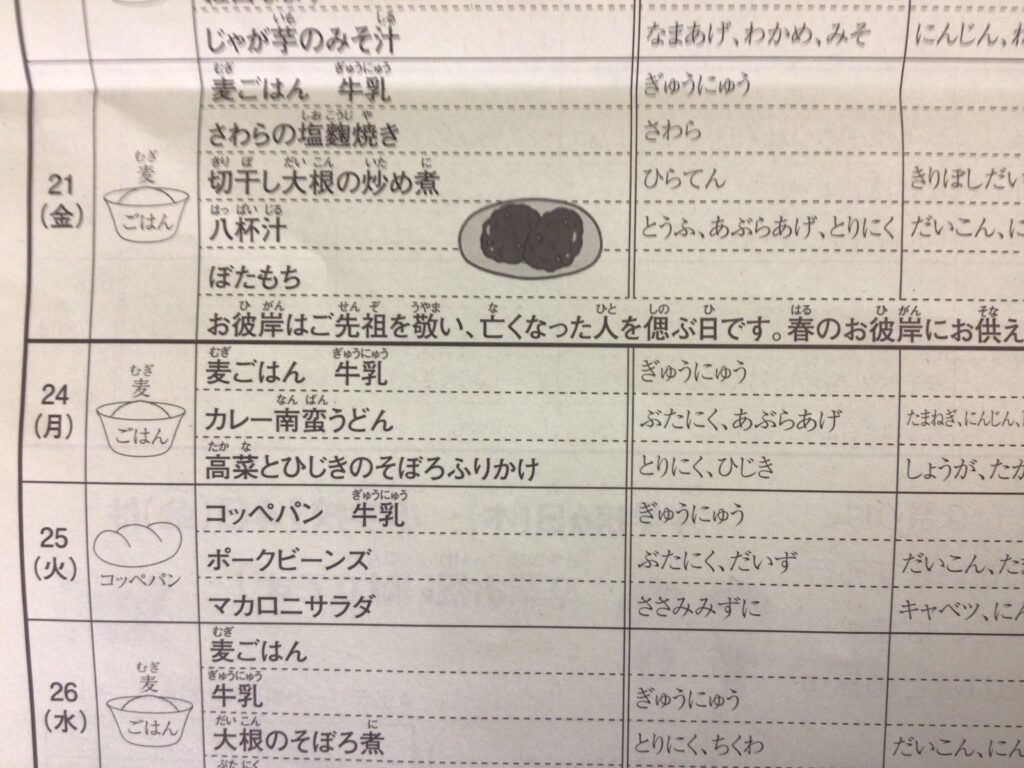 じゃが芋のみそ汁 なまあげ、わかめ、みそ にんじん、
21
(金)
麦
ごはん
麦ごはん 牛乳 ぎゅうにゅう
さわらの塩麴焼き さわら
切干し大根の炒め煮 ひらてん きりぼしだい
八杯汁 とうふ、あぶらあげ、とりにく だいこん、に
ぼたもち
お彼岸はご先祖を敬い、亡くなった人を偲ぶ日です。春のお彼岸にお供え
24
(月)
麦
ごはん
麦ごはん 牛乳 ぎゅうにゅう
カレー南蛮うどん ぶたにく、あぶらあげ たまねぎ、にんじん、
高菜とひじきのそぼろふりかけ とりにく、ひじき しょうが、たか
25
(火)
コッペパン
コッペパン 牛乳 ぎゅうにゅう
ポークビーンズ ぶたにく、だいず だいこん、たま
マカロニサラダ ささみみずに キャベツ、にん
26
(水)
麦
ごはん
麦ごはん
牛乳 ぎゅうにゅう
大根のそぼろ煮 とりにく、ちくわ だいこん、にん